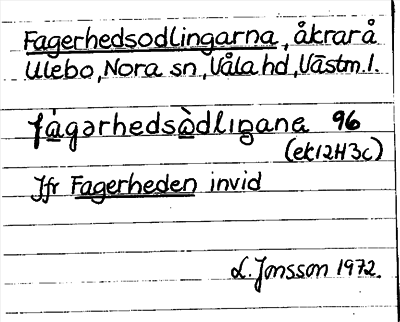 Fagerhedsodlingarna, åkrar å
Ulebo, Nora sn, Våla hd, Västm.l.
fágərhedsòdlıŋana 96
(ek 12H3c)
Jfr Fagerheden invid
L. Jonsson 1972.